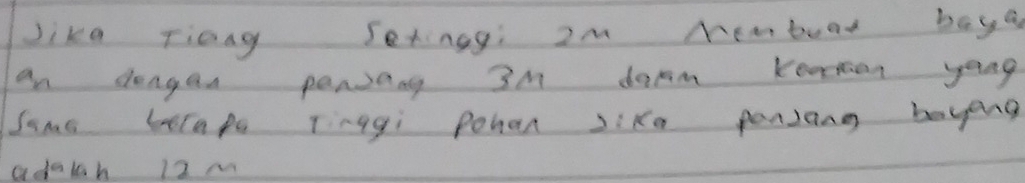 Jika Tiang Setinggi 2M Membuat baya
an dengan panjang 3M dalam keadaan yang
Sama berapa Tinggi Pohan Jika panjang bayang
adalah 12 m